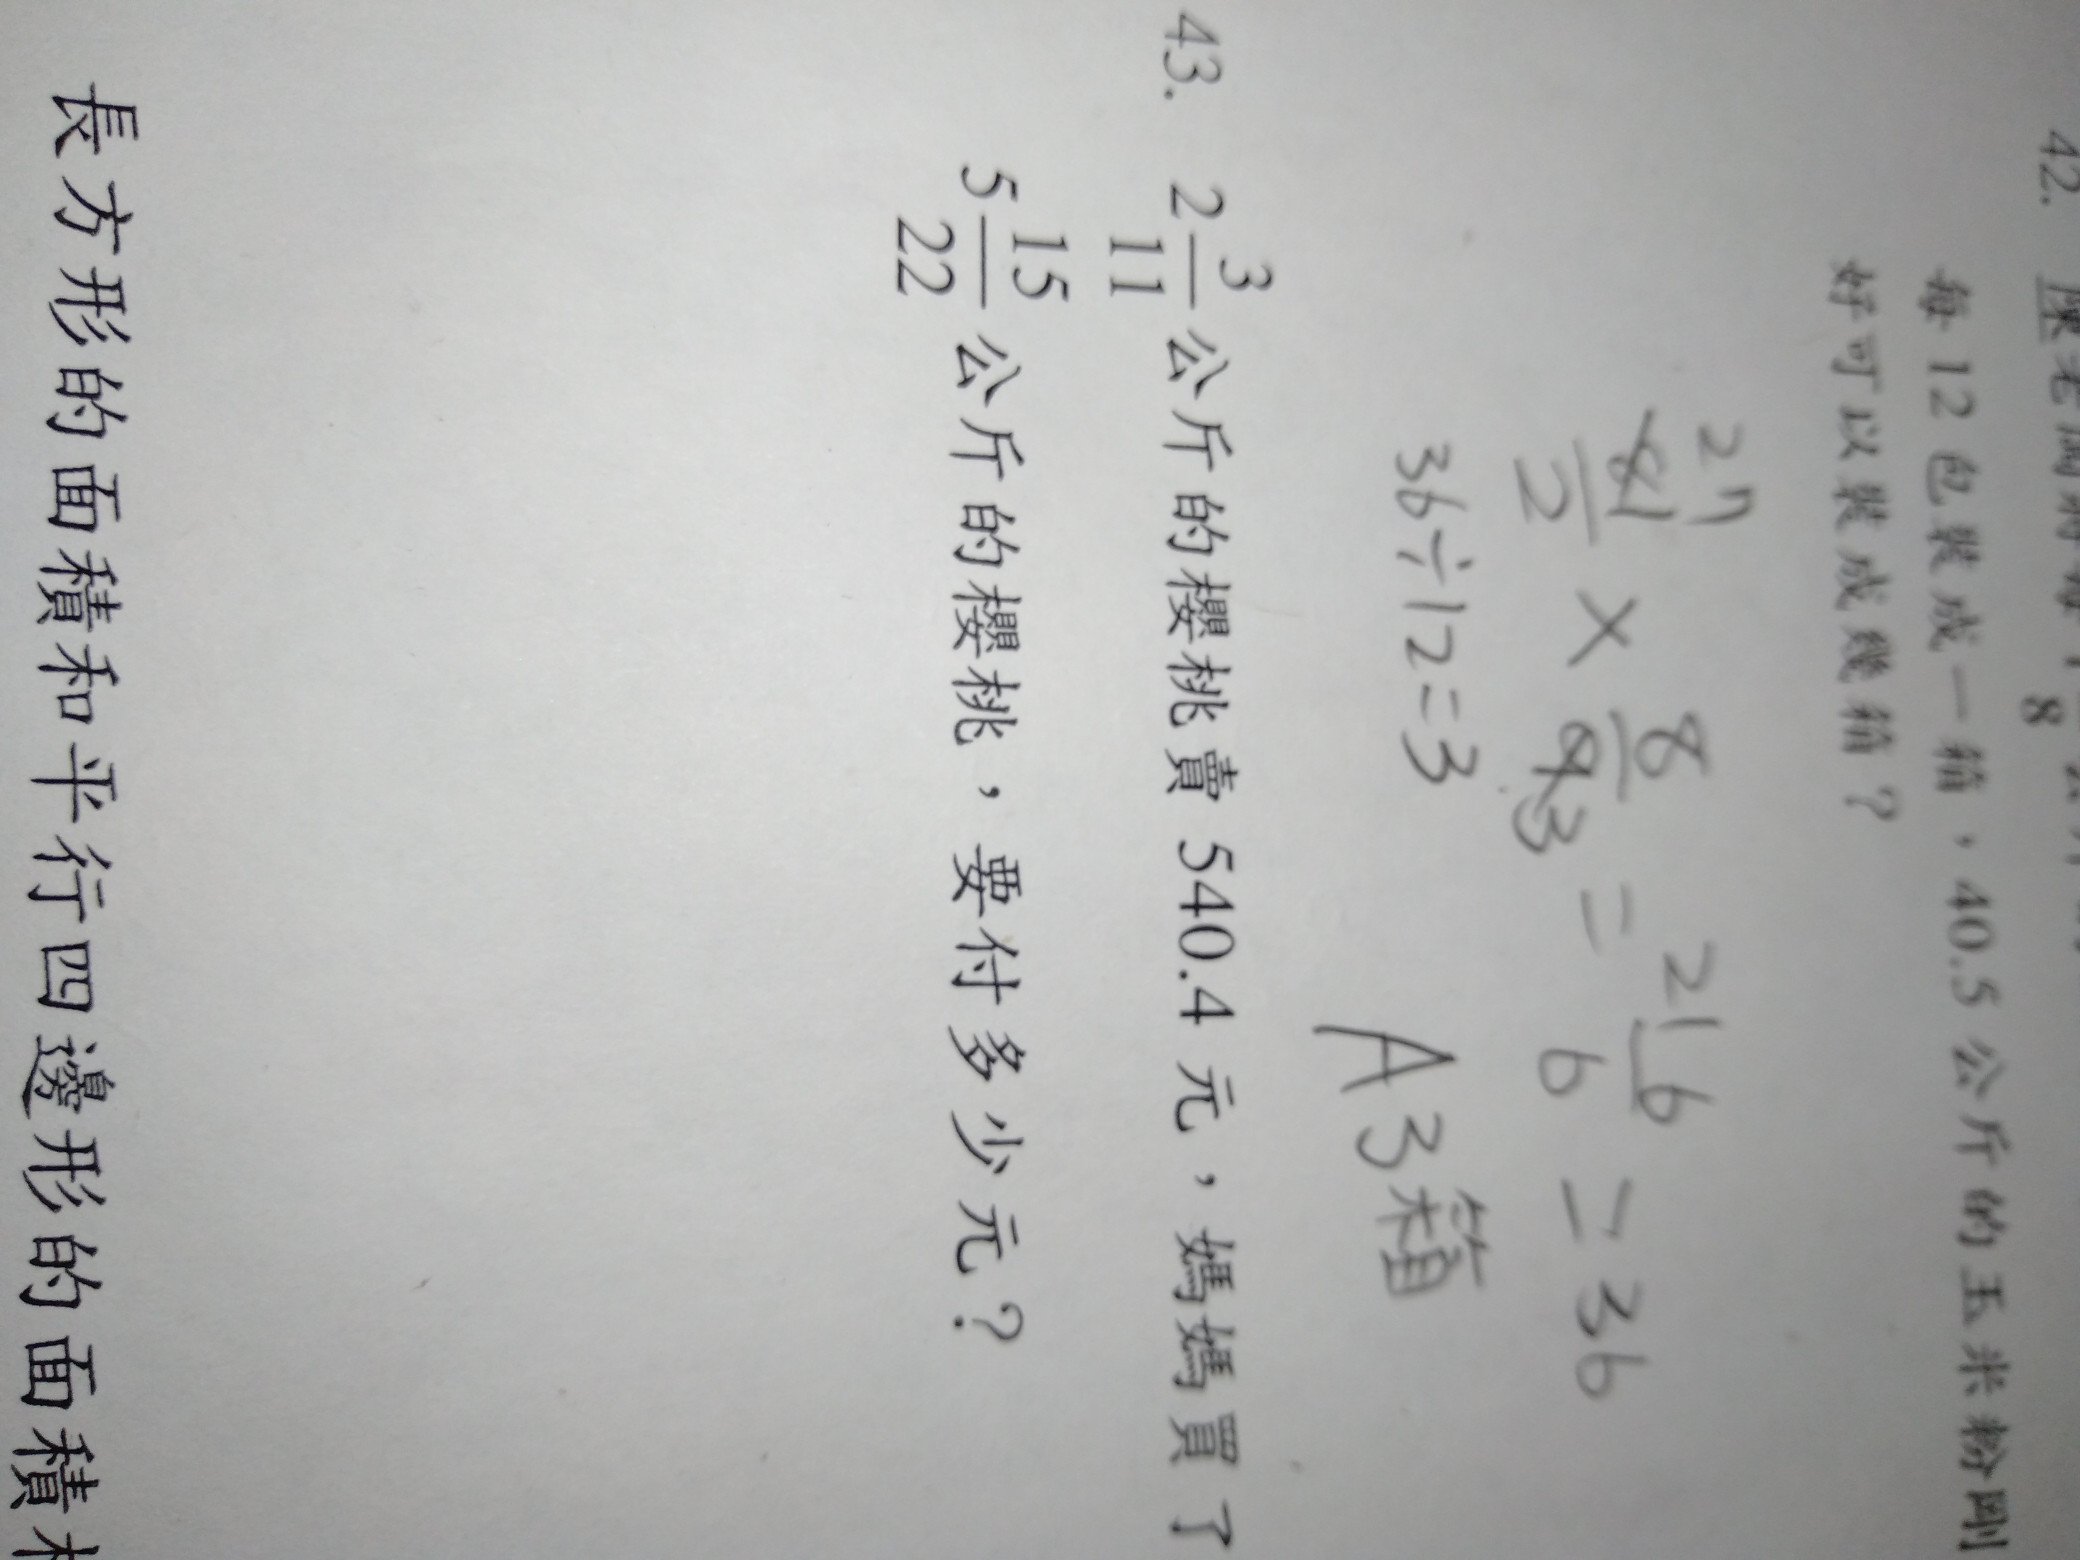 42. 陳老闆將每
8
每 12 包裝成一箱，40.5 公斤的玉米粉剛
好可以裝成幾箱？
27
81/2 × 8/9 3 = 216/6 = 36
36÷12=3
A 3箱
43. 2 3/11 公斤的櫻桃賣 540.4 元，媽媽買了
5 15/22 公斤的櫻桃，要付多少元？
長方形的面積和平行四邊形的面積